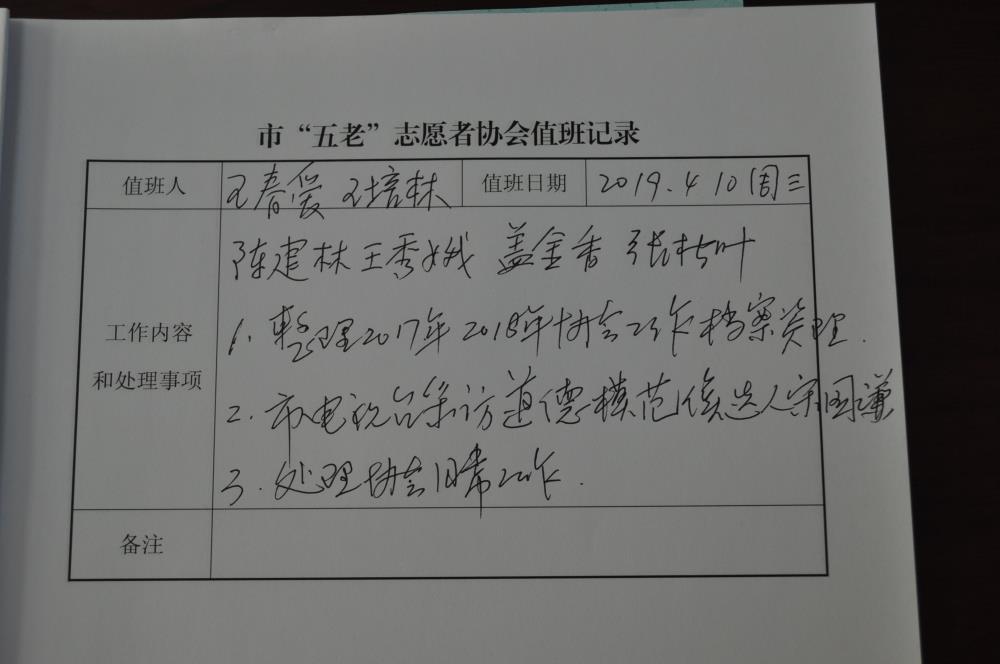 市“五老”志愿者协会值班记录
值班人 王春爱 王培林 值班日期 2019.4 10周三
陈建林 王秀娥 盖金香 张树叶
工作内容
和处理事项
1. 整理2017年2018年协会工作档案资理.
2. 市电视台采访道德模范候选人宋国谦
3. 处理协会日常工作.
备注